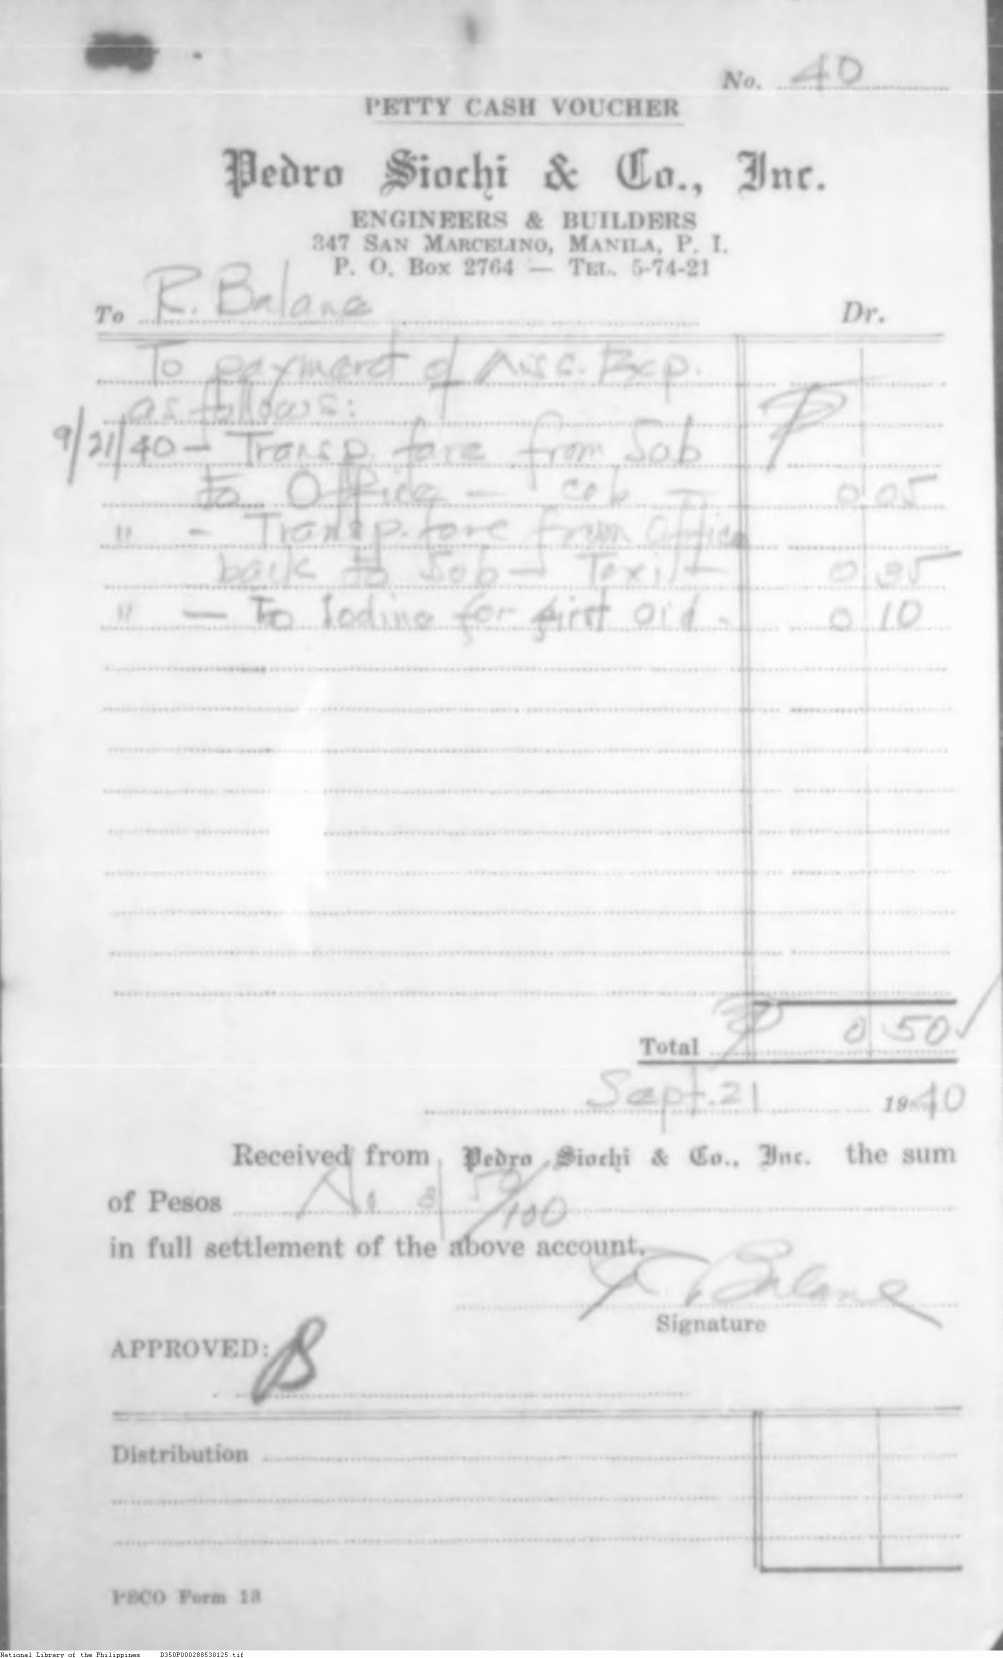 No. 40
PETTY CASH VOUCHER
Pedro Siochi & Co., Inc.
ENGINEERS & BUILDERS
347 SAN MARCELINO, MANILA, P. I.
P. O. Box 2764 — TEL. 5-74-21
To R. Balane Dr.
To payment of Misc. Exp.
as follows: ₱
9/21/40 - Transp. fare from Job
to Office — 0 05
" - Transp. fare from Office
back to Job - Taxi - 0 35
" — To Iodine for first aid - 0 10
Total ₱ 0 50
Sept. 21 1940
Received from Pedro Siochi & Co., Inc. the sum
of Pesos 50/100
in full settlement of the above account.
R. Balane
Signature
APPROVED:
Distribution
PSCO Form 13
National Library of the Philippines D350P000288530125.tif